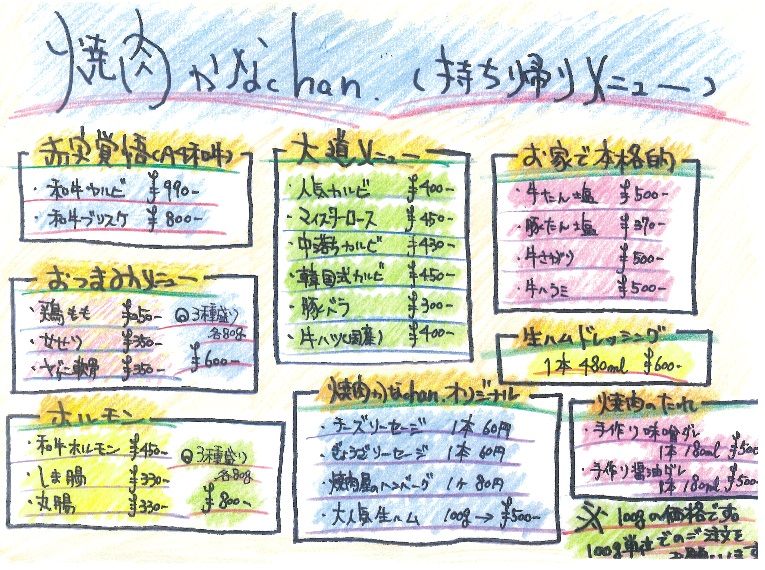 焼肉かなchan.(持ち帰りメニュー)
お実覚悟(A4和牛)
・和牛カルビ ¥990-
・和牛ブリスケ ¥800-
おつまみメニュー
・鶏もも ¥350-
・せせり ¥350-
・やげん軟骨 ¥350-
◎3種盛り
各80g
¥600-
ホルモン
・和牛ホルモン ¥450-
・しま腸 ¥330-
・丸腸 ¥330-
◎3種盛り
各80g
¥800-
大道メニュー
・人気カルビ ¥400-
・マイスターロース ¥450-
・中落ちカルビ ¥430-
・韓国式カルビ ¥450-
・豚バラ ¥300-
・牛ハツ(国産) ¥400-
焼肉かなchan.オリジナル
・チーズソーセージ 1本 60円
・ぎょうざソーセージ 1本 60円
・焼肉屋のハンバーグ 1ヶ 80円
・大人気生ハム 100g→¥500-
お家で本格的
・牛たん塩 ¥500-
・豚たん塩 ¥370-
・牛さがり ¥500-
・牛ハラミ ¥500-
生ハムドレッシング
1本 480ml ¥600-
焼肉のたれ
・手作り味噌ダレ
1本 180ml ¥500
・手作り醤油ダレ
1本 180ml ¥500
※100gの価格です。
100g単位でのご注文を
お願いします